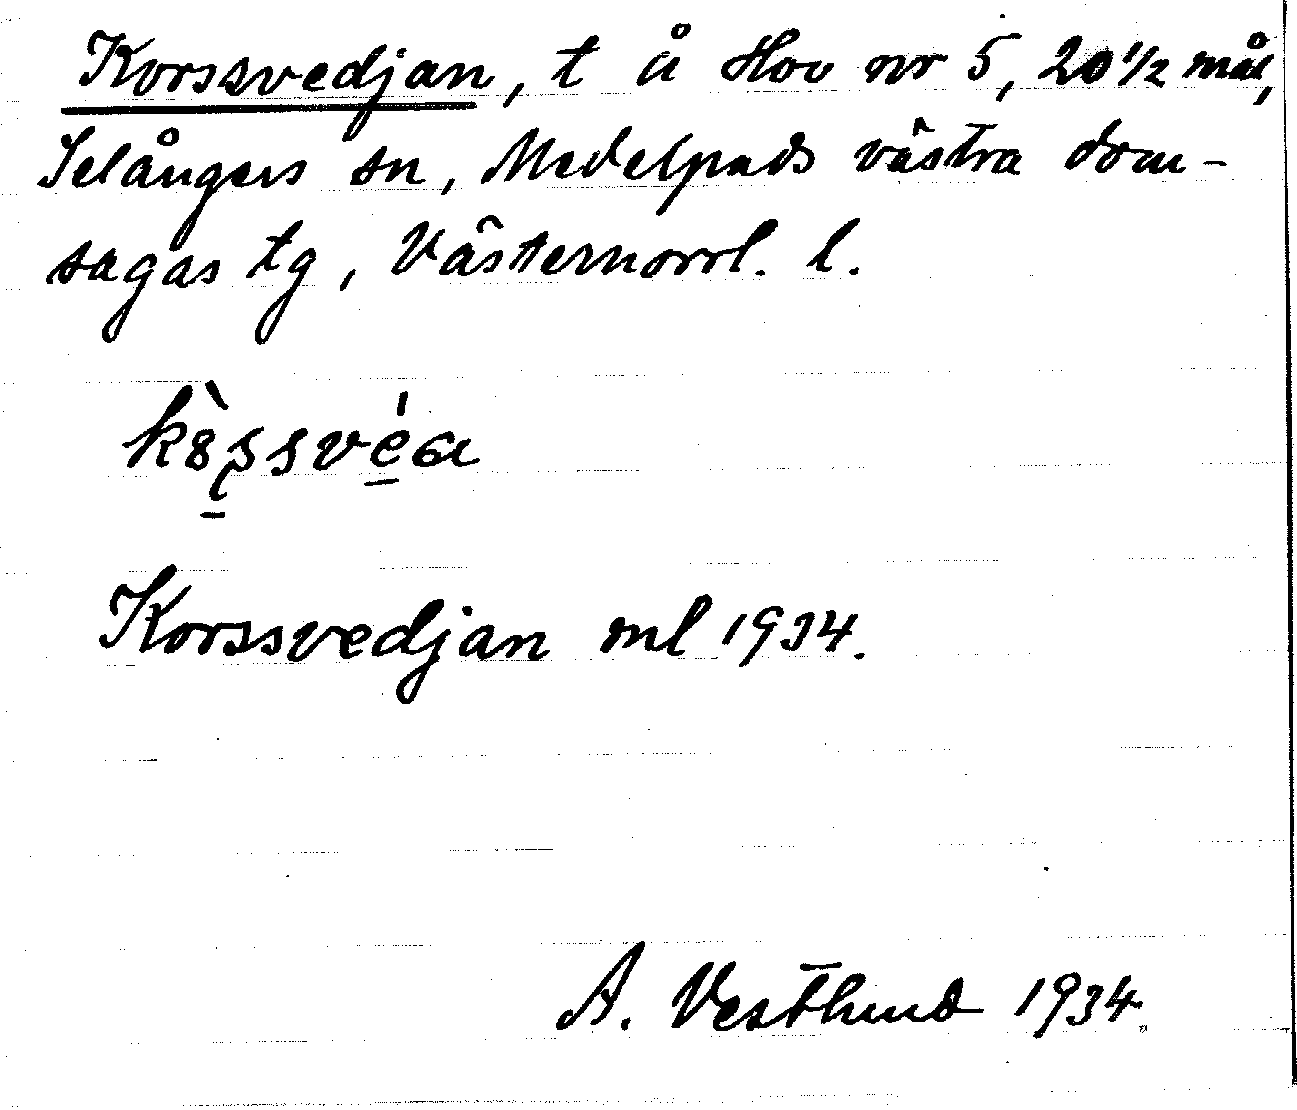 Korssvedjan, t å Hov nr 5, 20 1/2 mål,
Selångers sn, Medelpads västra dom-
sagas tg, Västernorrl. l.
Korssvedjan ml 1934.
A. Vestlund 1934.